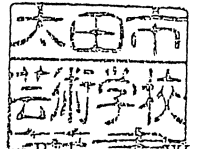 太田市
芸術学校